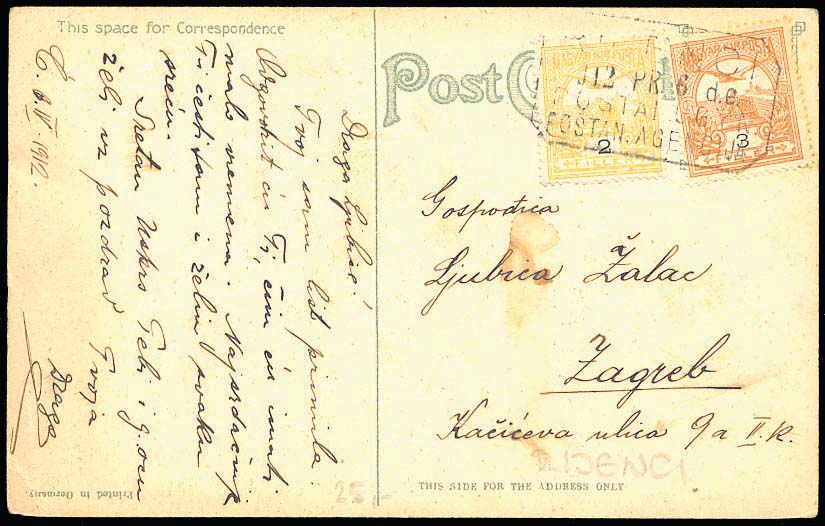 This space for Correspondence
Draga Ljubice!
Tvoj sam list primila.
Odgovorit ću Ti, čim ću imati
malo vremena. Najsrdačnije
Ti čestitam i želim svaku
sreću.
Sretan Uskrs Tebi i g. ocu
želi uz pozdrav Tvoja
Draga
6. IV 1912.
Printed in Germany.
Post
MAGYAR KIR. POSTA
2
FILLÉR
MAGYAR KIR. POSTA
3
FILLÉR
912 APR. 6 d.e.
POSTAI
POSTANSKA AGE
Gospođica
Ljubica Žalac
Zagreb
Kačićeva ulica 9a II. k.
ZIJENCI
25,-
THIS SIDE FOR THE ADDRESS ONLY